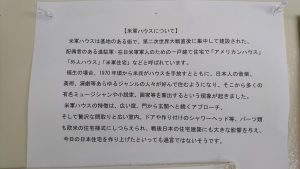 【米軍ハウスについて】
米軍ハウスは基地のある街で、第二次世界大戦直後に集中して建設された、
配備者のある進駐軍・在日米軍軍人のための一戸建て住宅で「アメリカンハウス」
「外人ハウス」「米軍住宅」などと呼ばれています。
福生の場合、1970年頃から米兵がハウスを手放すとともに、日本人の音楽、
美術、演劇等あらゆるジャンルの人々が好んで住むようになり、そこから多くの
有名ミュージシャンや小説家、画家等を輩出するという現象が起きました。
米軍ハウスの特徴は、広い庭、門から玄関へと続くアプローチ、
そして贅沢な間取りと広い室内、ドアや作り付けのシャワーヘッド等、パーツ類
も欧米の住宅様式にしつらえられ、戦後日本の住宅建築にも大きな影響を与え、
今日の日本住宅を作り上げたといっても過言ではないそうです。